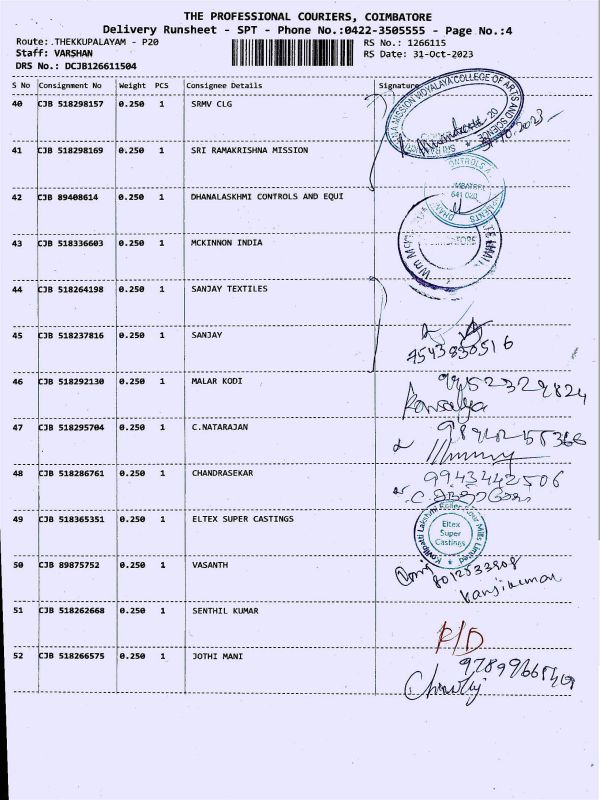 THE PROFESSIONAL COURIERS, COIMBATORE
Delivery Runsheet - SPT - Phone No.:0422-3505555 - Page No.:4
Route: .THEKKUPALAYAM - P20
RS No.: 1266115
Staff: VARSHAN
RS Date: 31-Oct-2023
DRS No.: DCJB126611504
S No Consignment No Weight PCS Consignee Details Signature
40 CJB 518298157 0.250 1 SRMV CLG
41 CJB 518298169 0.250 1 SRI RAMAKRISHNA MISSION
42 CJB 89408614 0.250 1 DHANALASKHMI CONTROLS AND EQUI
43 CJB 518336603 0.250 1 MCKINNON INDIA
44 CJB 518264198 0.250 1 SANJAY TEXTILES
45 CJB 518237816 0.250 1 SANJAY
7543830516
46 CJB 518292130 0.250 1 MALAR KODI
Kowsalya
47 CJB 518295704 0.250 1 C.NATARAJAN
48 CJB 518286761 0.250 1 CHANDRASEKAR
9943442506
49 CJB 518365351 0.250 1 ELTEX SUPER CASTINGS
Kovilpatti Lakshmi Roller Flour Mills Limited
Eltex
Super
Castings
50 CJB 89875752 0.250 1 VASANTH
8012533908
51 CJB 518262668 0.250 1 SENTHIL KUMAR
R/D
52 CJB 518266575 0.250 1 JOTHI MANI